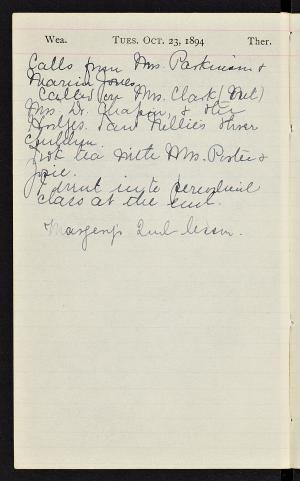 Wea. TUES. OCT. 23, 1894 Ther.
Calls from Mrs. Parkinson &
Maria Jones
Called on Mrs. Clark (Out)
Mrs. D. &
Hodges. saw Nellie's three
children.
Took tea with Mrs. Porter &
Josie.
I went into
class at the end.
Margery's 2nd lesson.